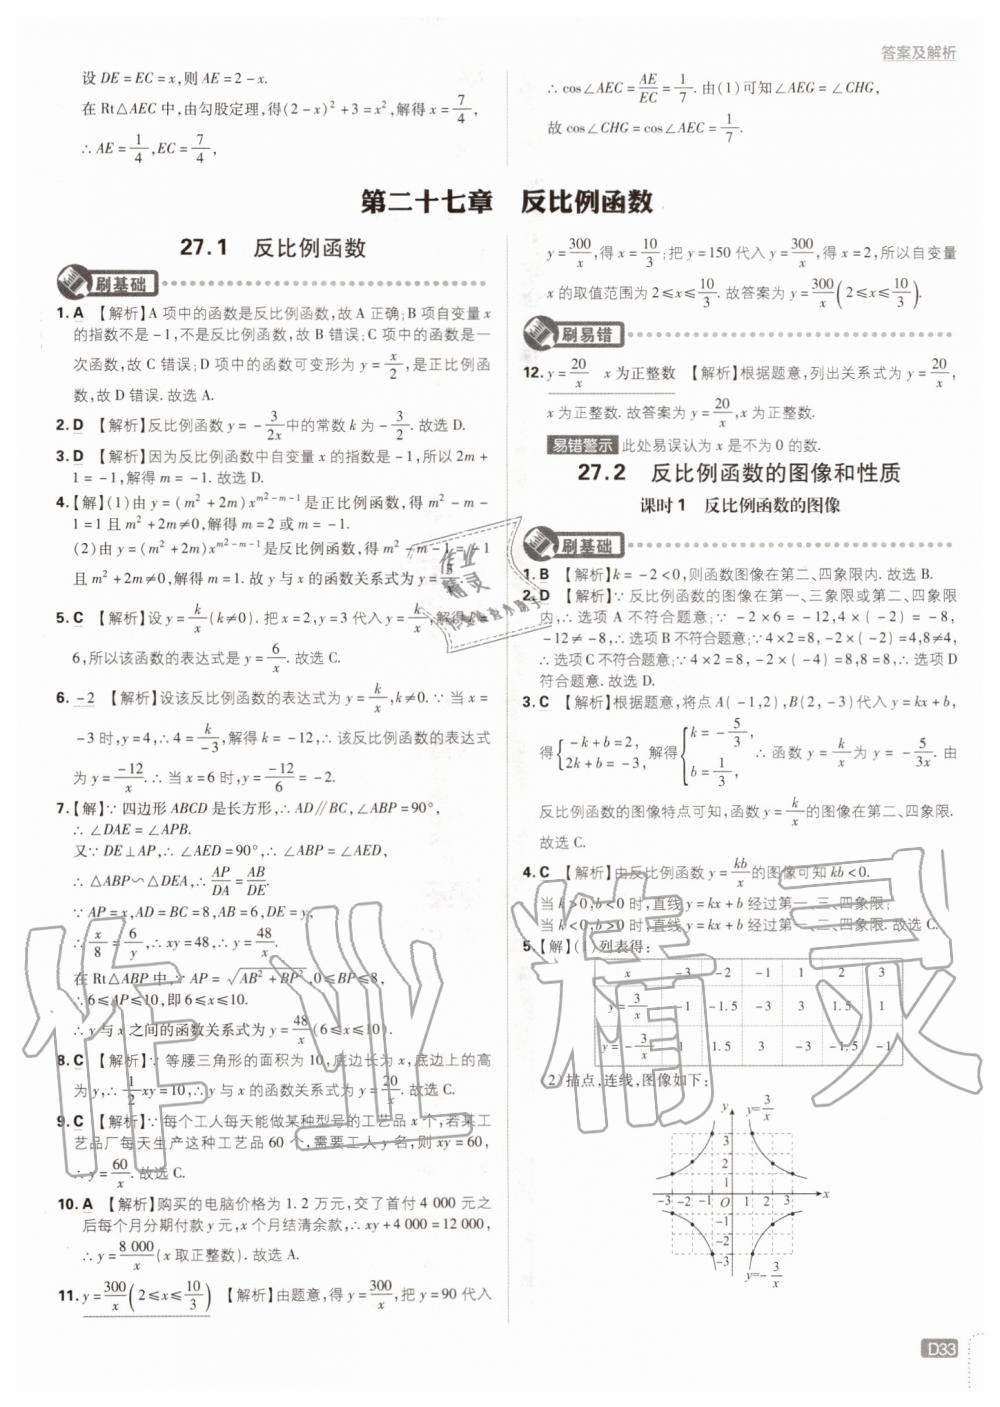 答案及解析
设 DE = EC = x,则 AE = 2 - x.
在 Rt△AEC 中,由勾股定理,得(2 - x)² + 3 = x²,解得 x = 7/4,
∴ AE = 1/4, EC = 7/4,
∴ cos∠AEC = AE/EC = 1/7. 由(1)可知∠AEG = ∠CHG,
故 cos∠CHG = cos∠AEC = 1/7.
第二十七章 反比例函数
27.1 反比例函数
刷基础
1. A 【解析】A 项中的函数是反比例函数,故 A 正确;B 项自变量 x
的指数不是 -1,不是反比例函数,故 B 错误;C 项中的函数是一
次函数,故 C 错误;D 项中的函数可变形为 y = x/2,是正比例函
数,故 D 错误. 故选 A.
2. D 【解析】反比例函数 y = -3/2x 中的常数 k 为 -3/2. 故选 D.
3. D 【解析】因为反比例函数中自变量 x 的指数是 -1,所以 2m +
1 = -1,解得 m = -1. 故选 D.
4.【解】(1)由 y = (m² + 2m)x^(m²-m-1) 是正比例函数,得 m² - m -
1 = 1 且 m² + 2m ≠ 0,解得 m = 2 或 m = -1.
(2)由 y = (m² + 2m)x^(m²-m-1) 是反比例函数,得 m² - m - 1 = -1
且 m² + 2m ≠ 0,解得 m = 1. 故 y 与 x 的函数关系式为 y =
5. C 【解析】设 y = k/x (k ≠ 0). 把 x = 2, y = 3 代入 y = k/x,解得 k =
6,所以该函数的表达式是 y = 6/x. 故选 C.
6. -2 【解析】设该反比例函数的表达式为 y = k/x, k ≠ 0. ∵ 当 x =
-3 时, y = 4, ∴ 4 = k/-3,解得 k = -12, ∴ 该反比例函数的表达式
为 y = -12/x. ∴ 当 x = 6 时, y = -12/6 = -2.
7.【解】∵ 四边形 ABCD 是长方形, ∴ AD∥BC, ∠ABP = 90°,
∴ ∠DAE = ∠APB.
又∵ DE⊥AP, ∴ ∠AED = 90°, ∴ ∠ABP = ∠AED,
∴ △ABP∽△DEA, ∴ AP/DA = AB/DE.
∵ AP = x, AD = BC = 8, AB = 6, DE = y,
∴ x/8 = 6/y, ∴ xy = 48, ∴ y = 48/x.
在 Rt△ABP 中, ∵ AP = √(AB² + BP²), 0 ≤ BP ≤ 8,
∴ 6 ≤ AP ≤ 10,即 6 ≤ x ≤ 10.
∴ y 与 x 之间的函数关系式为 y = 48/x (6 ≤ x ≤ 10).
8. C 【解析】∵ 等腰三角形的面积为 10,底边长为 x,底边上的高
为 y, ∴ 1/2 xy = 10, ∴ y 与 x 的函数关系式为 y = 20/x. 故选 C.
9. C 【解析】∵ 每个工人每天能做某种型号的工艺品 x 个,若某工
艺品厂每天生产这种工艺品 60 个,需要工人 y 名,则 xy = 60,
∴ y = 60/x. 故选 C.
10. A 【解析】购买的电脑价格为 1.2 万元,交了首付 4 000 元之
后每个月分期付款 y 元, x 个月结清余款, ∴ xy + 4 000 = 12 000,
∴ y = 8 000/x (x 取正整数). 故选 A.
11. y = 300/x (2 ≤ x ≤ 10/3) 【解析】由题意,得 y = 300/x,把 y = 90 代入
y = 300/x,得 x = 10/3;把 y = 150 代入 y = 300/x,得 x = 2,所以自变量
x 的取值范围为 2 ≤ x ≤ 10/3. 故答案为 y = 300/x (2 ≤ x ≤ 10/3).
刷易错
12. y = 20/x x 为正整数 【解析】根据题意,列出关系式为 y = 20/x,
x 为正整数. 故答案为 y = 20/x, x 为正整数.
易错警示 此处易误认为 x 是不为 0 的数.
27.2 反比例函数的图像和性质
课时 1 反比例函数的图像
刷基础
1. B 【解析】k = -2 < 0,则函数图像在第二、四象限内. 故选 B.
2. D 【解析】∵ 反比例函数的图像在第一、三象限或第二、四象限
内, ∴ 选项 A 不符合题意; ∵ -2×6 = -12, 4×(-2) = -8,
-12 ≠ -8, ∴ 选项 B 不符合题意; ∵ 4×2 = 8, -2×(-2) = 4, 8 ≠ 4,
∴ 选项 C 不符合题意; ∵ 4×2 = 8, -2×(-4) = 8, 8 = 8, ∴ 选项 D
符合题意. 故选 D.
3. C 【解析】根据题意,将点 A(-1,2), B(2,-3)代入 y = kx + b,
得{-k + b = 2, 2k + b = -3, 解得{k = -5/3, b = 1/3, ∴ 函数 y = k/x 为 y = -5/3x. 由
反比例函数的图像特点可知,函数 y = k/x 的图像在第二、四象限.
故选 C.
4. C 【解析】由反比例函数 y = kb/x 的图像可知 kb < 0.
当 k > 0, b < 0 时,直线 y = kx + b 经过第一、三、四象限;
当 k < 0, b > 0 时,直线 y = kx + b 经过第一、二、四象限. 故选 C.
5.【解】(1)列表得:
x -3 -2 -1 1 2 3
y = 3/x -1 -1.5 -3 3 1.5 1
y = -3/x 1 1.5 3 -3 -1.5 -1
(2)描点,连线,图像如下:
y y=3/x
3
2
1
-3 -2 -1 O 1 2 3 x
-1
-2
-3
y=-3/x
作业精灵
作业精灵
D33